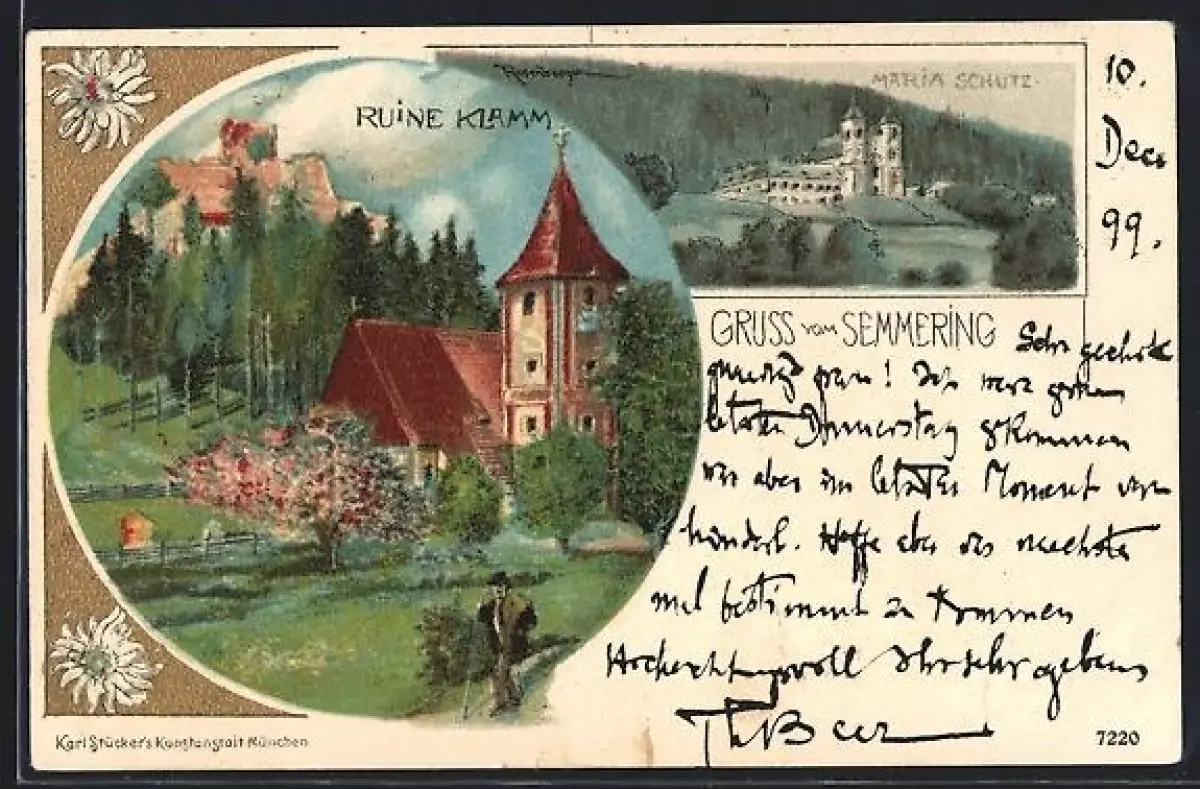 RUINE KLAMM
MARIA SCHUTZ.
10.
Dec.
99.
GRUSS vom SEMMERING
Sehr geehrte
gnädige Frau! Ich wäre gestern
letzten Donnerstag gekommen
war aber im letzten Moment ver-
hindert. Hoffe aber das nächste
mal bestimmt zu kommen
Hochachtungsvoll Ihr sehr ergebener
Th Beer
Karl Stücker's Kunstanstalt München
7220